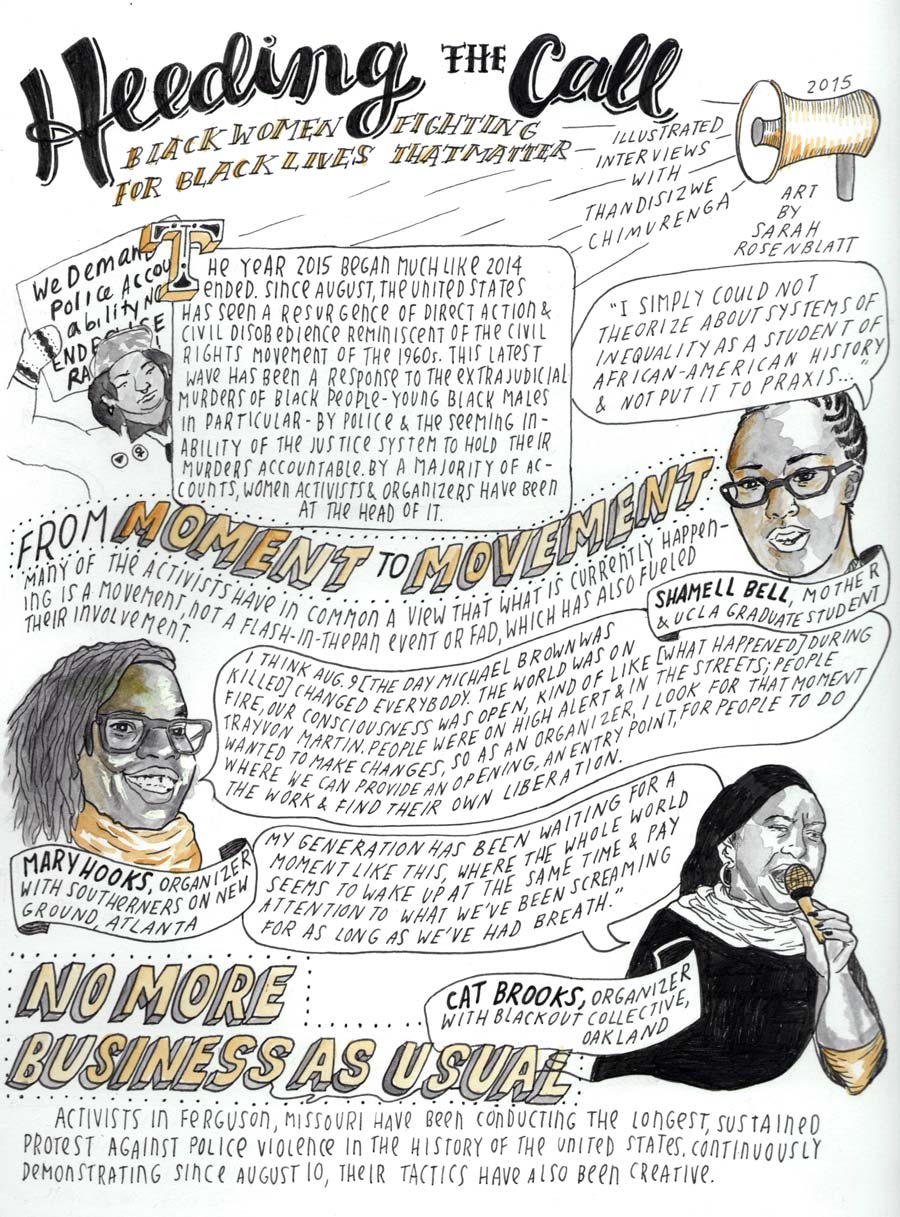 Heeding THE Call
BLACK WOMEN FIGHTING
FOR BLACK LIVES THAT MATTER
ILLUSTRATED
INTERVIEWS
WITH
THANDISIZWE
CHIMURENGA
2015
ART
BY
SARAH
ROSENBLATT
We Demand
Police Accou
ability NO
END POLICE
RA
THE YEAR 2015 BEGAN MUCH LIKE 2014
ENDED. SINCE AUGUST, THE UNITED STATES
HAS SEEN A RESURGENCE OF DIRECT ACTION &
CIVIL DISOBEDIENCE REMINISCENT OF THE CIVIL
RIGHTS MOVEMENT OF THE 1960s. THIS LATEST
WAVE HAS BEEN A RESPONSE TO THE EXTRAJUDICIAL
MURDERS OF BLACK PEOPLE-YOUNG BLACK MALES
IN PARTICULAR - BY POLICE & THE SEEMING IN-
ABILITY OF THE JUSTICE SYSTEM TO HOLD THEIR
MURDERS ACCOUNTABLE. BY A MAJORITY OF AC-
COUNTS, WOMEN ACTIVISTS & ORGANIZERS HAVE BEEN
AT THE HEAD OF IT.
"I SIMPLY COULD NOT
THEORIZE ABOUT SYSTEMS OF
INEQUALITY AS A STUDENT OF
AFRICAN-AMERICAN HISTORY
& NOT PUT IT TO PRAXIS..."
SHAMELL BELL, MOTHER
& UCLA GRADUATE STUDENT
FROM MOMENT TO MOVEMENT
MANY OF THE ACTIVISTS HAVE IN COMMON A VIEW THAT WHAT IS CURRENTLY HAPPEN-
ING IS A MOVEMENT, NOT A FLASH-IN-THEPAN EVENT OR FAD, WHICH HAS ALSO FUELED
THEIR INVOLVEMENT.
I THINK AUG. 9 [THE DAY MICHAEL BROWN WAS
KILLED] CHANGED EVERYBODY. THE WORLD WAS ON
FIRE, OUR CONSCIOUSNESS WAS OPEN, KIND OF LIKE [WHAT HAPPENED] DURING
TRAYVON MARTIN. PEOPLE WERE ON HIGH ALERT & IN THE STREETS; PEOPLE
WANTED TO MAKE CHANGES, SO AS AN ORGANIZER, I LOOK FOR THAT MOMENT
WHERE WE CAN PROVIDE AN OPENING, AN ENTRY POINT, FOR PEOPLE TO DO
THE WORK & FIND THEIR OWN LIBERATION.
MARY HOOKS, ORGANIZER
WITH SOUTHERNERS ON NEW
GROUND, ATLANTA
MY GENERATION HAS BEEN WAITING FOR A
MOMENT LIKE THIS, WHERE THE WHOLE WORLD
SEEMS TO WAKE UP AT THE SAME TIME & PAY
ATTENTION TO WHAT WE'VE BEEN SCREAMING
FOR AS LONG AS WE'VE HAD BREATH."
CAT BROOKS, ORGANIZER
WITH BLACKOUT COLLECTIVE,
OAKLAND
NO MORE
BUSINESS AS USUAL
ACTIVISTS IN FERGUSON, MISSOURI HAVE BEEN CONDUCTING THE LONGEST, SUSTAINED
PROTEST AGAINST POLICE VIOLENCE IN THE HISTORY OF THE UNITED STATES. CONTINUOUSLY
DEMONSTRATING SINCE AUGUST 10, THEIR TACTICS HAVE ALSO BEEN CREATIVE.